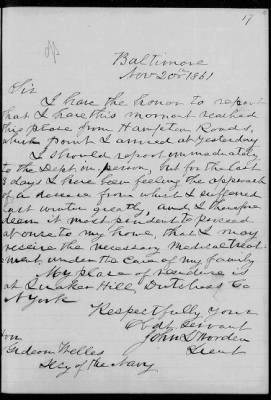 19
Baltimore
Nov 20th 1861
Sir
I have the honor to report
that I have this moment reached
this place from Hampton Roads,
which point I arrived at yesterday.
I should report immediately
to the Dept in person, but for the last
3 days I have been feeling the approach
of a disease from which I suffered
last winter greatly, and I therefore
deem it most prudent to proceed
at once to my home, that I may
receive the necessary medical treat
ment under the care of my family
My place of residence is
at Quaker Hill, Dutchess Co
N York
Respectfully Yours
Obdt Servant
John L Worden
Lieut
Hon
Gideon Welles
Secy of the Navy